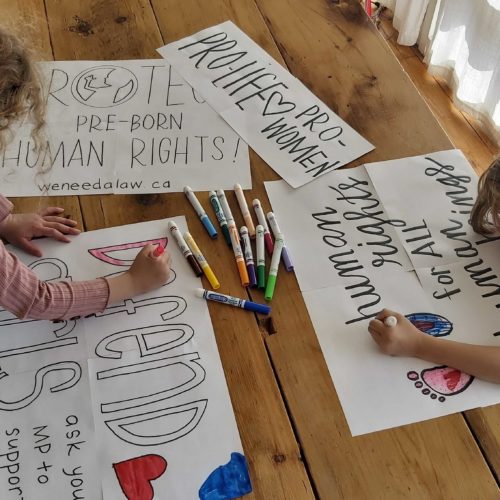 ROTEC
PRE-BORN
HUMAN RIGHTS!
weneedalaw.ca
PRO-LIFE
PRO-
WOMEN
human
rights
for ALL
uman
eings
Defend
girls
ask you
MP to
suppor